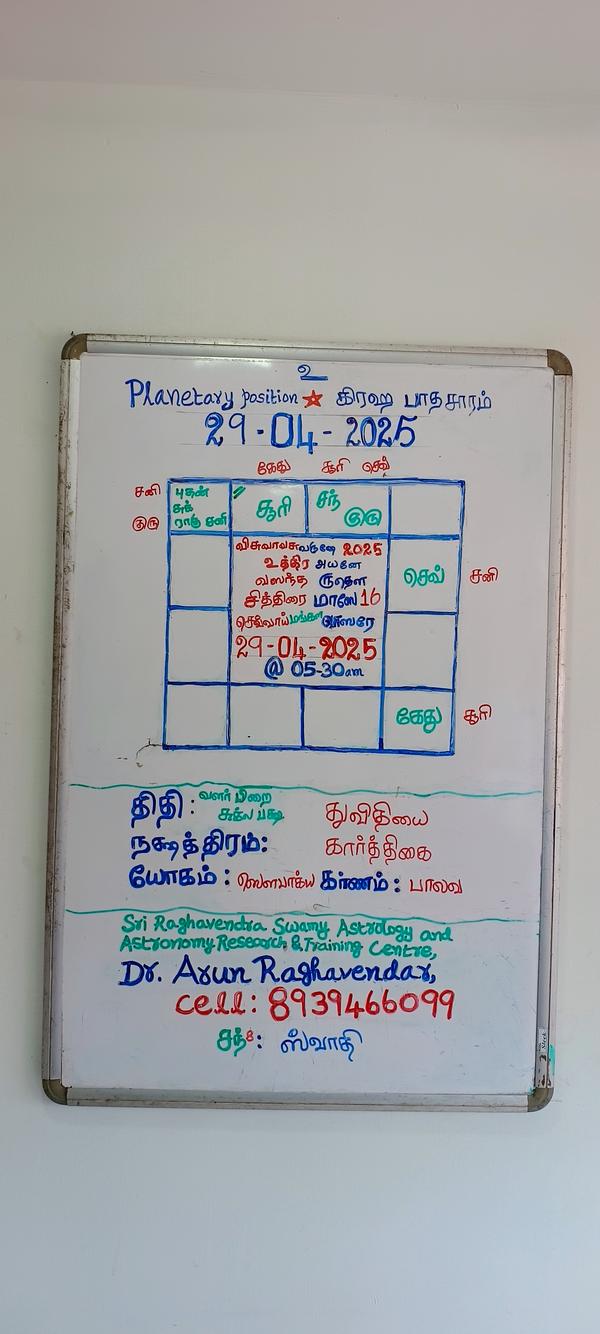 உ
Planetary position ☆ கிரஹ பாதசாரம்
29-04-2025
கேது சூரி செவ்
சனி
குரு
புதன்
சுக்
ராகு சனி
சூரி
சந்
குரு
விசுவாவசுவருஷே 2025
உத்திர அயனே
வஸந்த ருதௌ
சித்திரை மாஸே 16
செவ்வாய் மங்கள வாஸரே
29-04-2025
@ 05-30am
செவ்
சனி
கேது
சூரி
திதி : வளர் பிறை
சுக்ல பக்ஷ
துவிதியை
நக்ஷத்திரம்: கார்த்திகை
யோகம் : ஸௌபாக்ய கரணம் : பாலவ
Sri Raghavendra Swamy Astrology and
Astronomy Research & Training Centre,
Dr. Arun Raghavendar,
cell: 8939466099
ஸ்வாதி